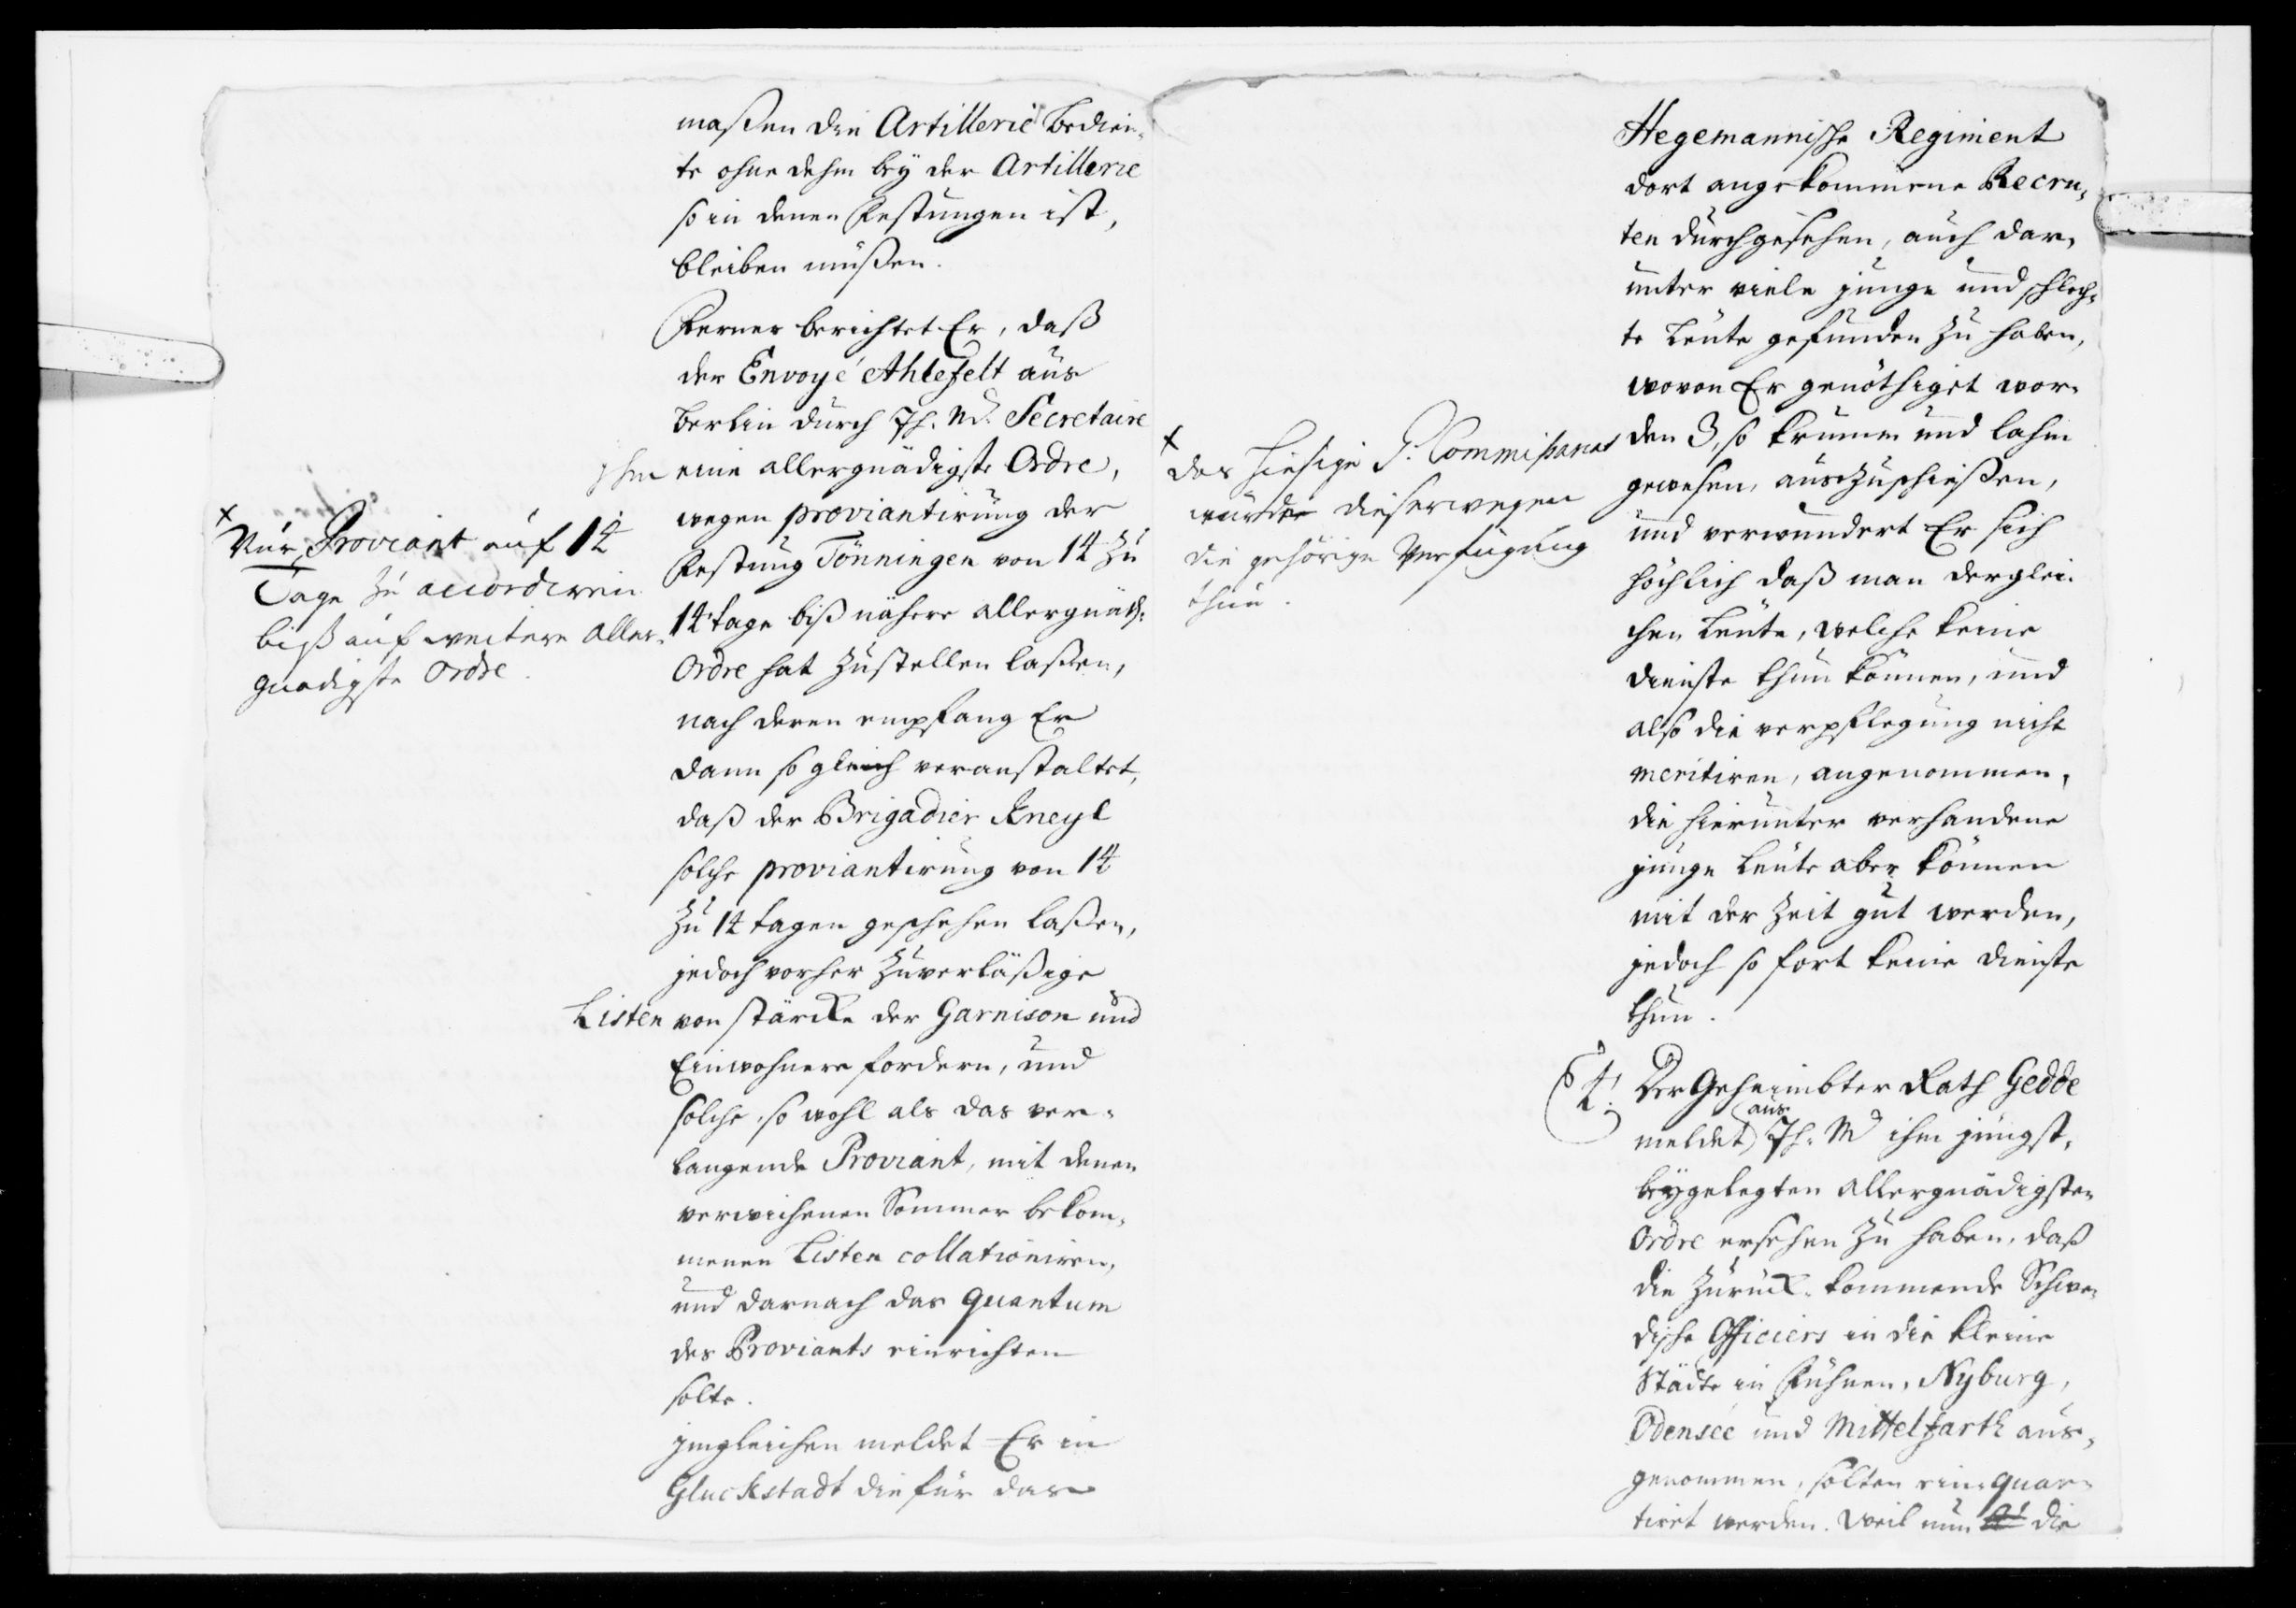 maßen die Artillerie bedien-
te ohne dehm bey der Artillerie
so in denen Festungen ist,
bleiben müßen.
Ferner berichtet Er, daß
der Envoyé Ahlefelt aus
Berlin durch Ih. Md. Secretaire
Ihm eine allergnädigste Ordre,
wegen proviantirung der
Festung Tönningen von 14 zu
14 tage biß nähere allergnäd:
Ordre hat zustellen laßen,
nach deren empfang Er
dann so gleich veranstaltet,
daß der Brigadier Kneyl
solche proviantirung von 14
zu 14 tagen geschehen laßen,
jedoch vorher zuverläßige
Listen von stärcke der Garnison und
Einwohnere fordern, und
solche so wohl als das ver-
langende Proviant, mit denen
verwichenen Sommer bekom-
menen Listen collationiren,
und darnach das quantum
des Proviants einrichten
solte.
jmgleichen meldet Er in
Gluckstadt die für das
x
Nur Proviant auf 14
Tage zu accordiren
biß auf weitere aller-
gnädigste Ordre.
Hegemannische Regiment
dort angekommene Recru-
ten durchgesehen, auch dar-
unter viele junge und schlech-
te Leute gefunden zu haben,
wovon Er genöthiget wor-
den 3, so krumm und lahm
gewesen, auszuschießen,
und verwundert Er sich
höchlich daß man derglei-
chen Leute, welche keine
dienste thun können, und
also die verpflegung nicht
meritiren, angenommen,
die hierunter verhandene
junge Leute aber können
mit der Zeit gut werden,
jedoch so fort keine dienste
thun.
x
das hiesige Commißariat
würde dieserwegen
die gehörige Verfügung
thun.
§ 4. Der Geheimbter Rath Gedde
meldet aus Ih. M ihm jüngst-
beygelegten allergnädigsten
Ordre ersehen zu haben, daß
die zurück-kommende Schwe-
dische Officiers in die kleine
Städte in Fühnen, Nyburg,
Odenseé und Mittelfarth aus-
genommen, solten ein-quar-
tiret werden. Weil nun die